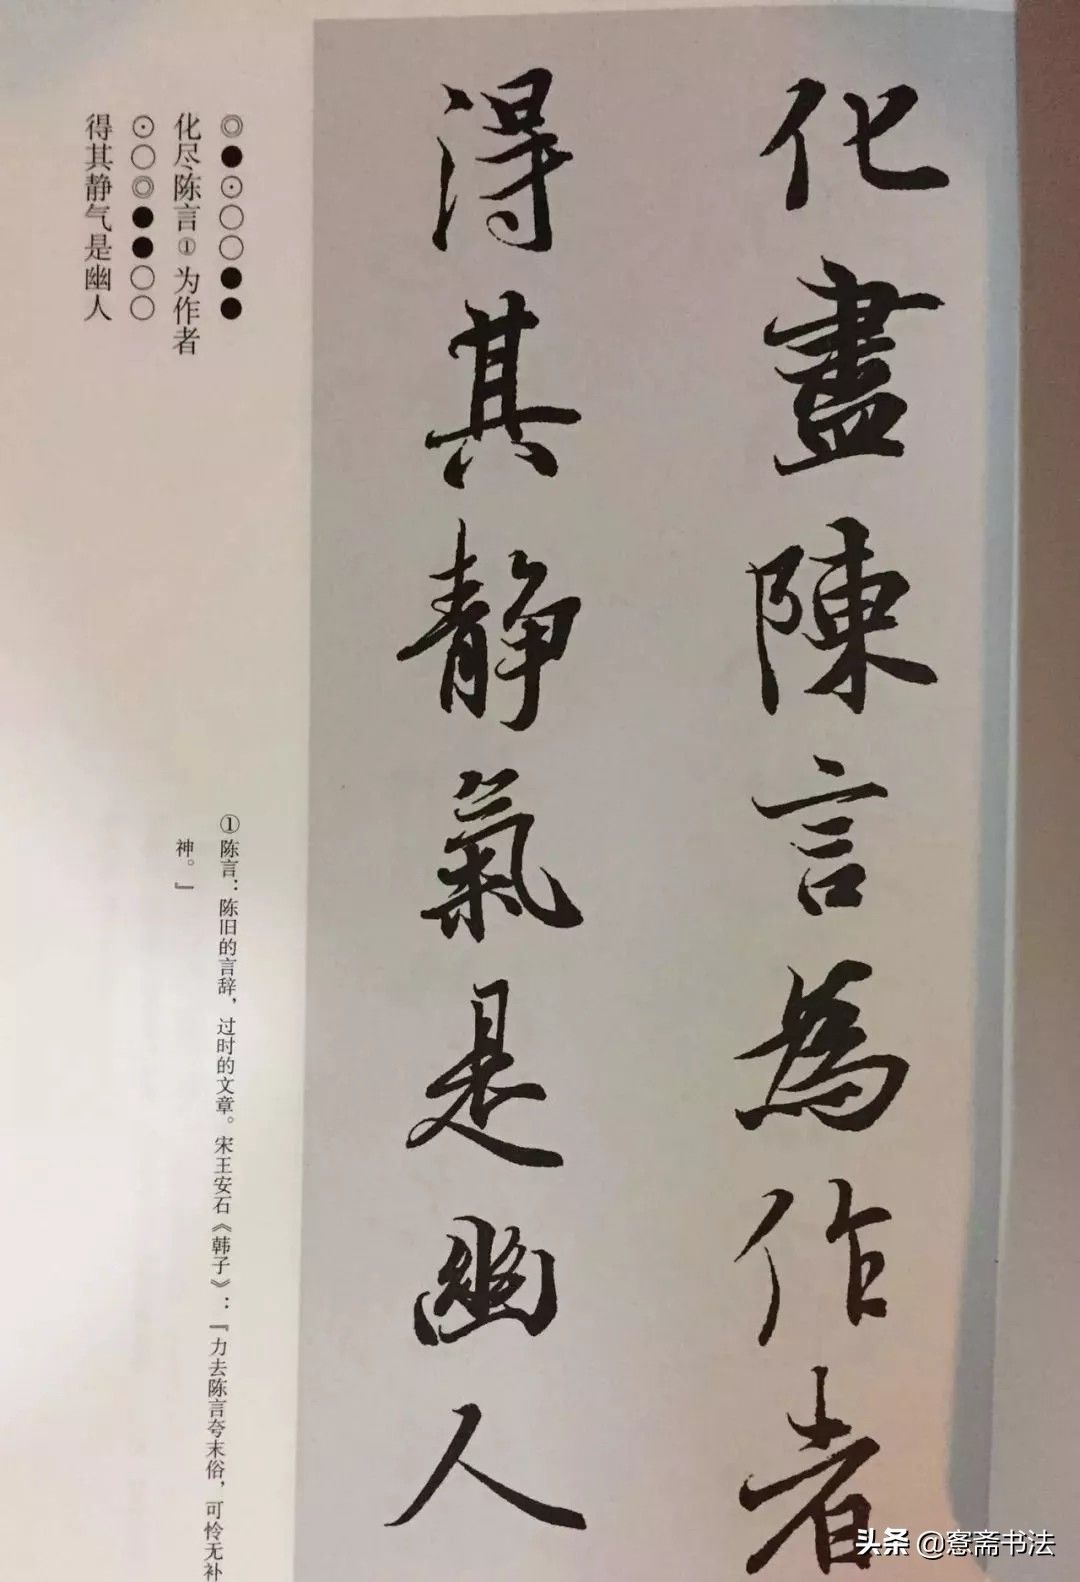 化盡陳言為作者
得其靜氣是幽人
◎●⊙○○●●
化尽陈言①为作者
⊙○◎●●○○
得其静气是幽人
①陈言：陈旧的言辞，过时的文章。宋王安石《韩子》：『力去陈言夸末俗，可怜无补
神。』
头条 @愙斋书法